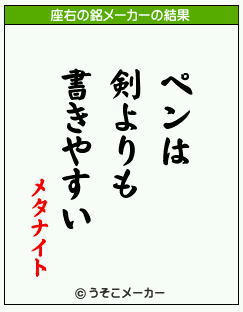 座右の銘メーカーの結果
ペンは
剣よりも
書きやすい
メタナイト
©うそこメーカー